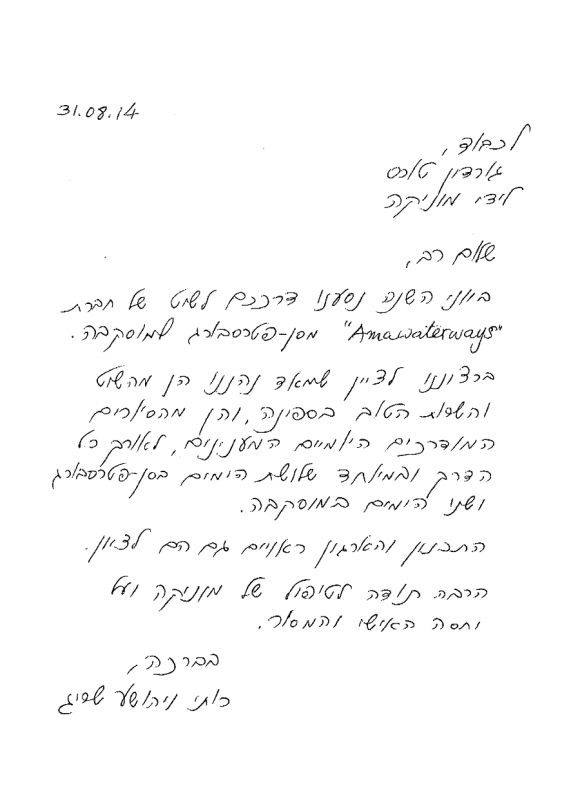 31.08.14
לכבוד,
גורדון טורס
לידי מוניקה
שלום רב,
ביוני השנה נסענו דרככם לשוט של חברת
"Amawaterways" מסן-פטרסבורג למוסקבה.
ברצוננו לציין שמאד נהננו הן מהשוט
והשרות הטוב בספינה, והן מהסיורים
המודרכים היומיים המענינים, לאורך כל
הדרך ובמיוחד שלושת הימים בסן-פטרסבורג
ושני הימים במוסקבה.
התכנון והארגון ראויים גם הם לציון.
הרבה תודה לטיפול של מוניקה ועל
יחסה האישי והמסור.
בברכה,
רותי ויהושע